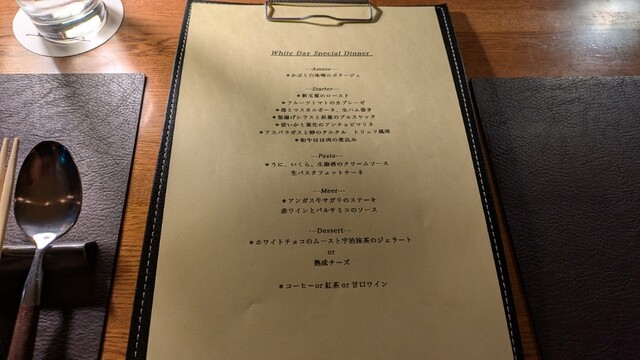 White Day Special Dinner
---Amuse---
＊かぶと白味噌のポタージュ
---Starter---
＊新玉葱のロースト
＊フルーツトマトのカプレーゼ
＊苺とマスカルポーネ、生ハム巻き
＊釜揚げシラスと長葱のブルスケッタ
＊蛍いかと菜花のアンチョビマリネ
＊アスパラガスと卵のタルタル　トリュフ風味
＊和牛ほほ肉の煮込み
---Pasta---
＊うに、いくら、生海苔のクリームソース
生パスタフェットチーネ
---Meet---
＊アンガス牛サガリのステーキ
赤ワインとバルサミコのソース
---Dessert---
＊ホワイトチョコのムースと宇治抹茶のジェラート
or
熟成チーズ
＊コーヒーor 紅茶 or 甘口ワイン